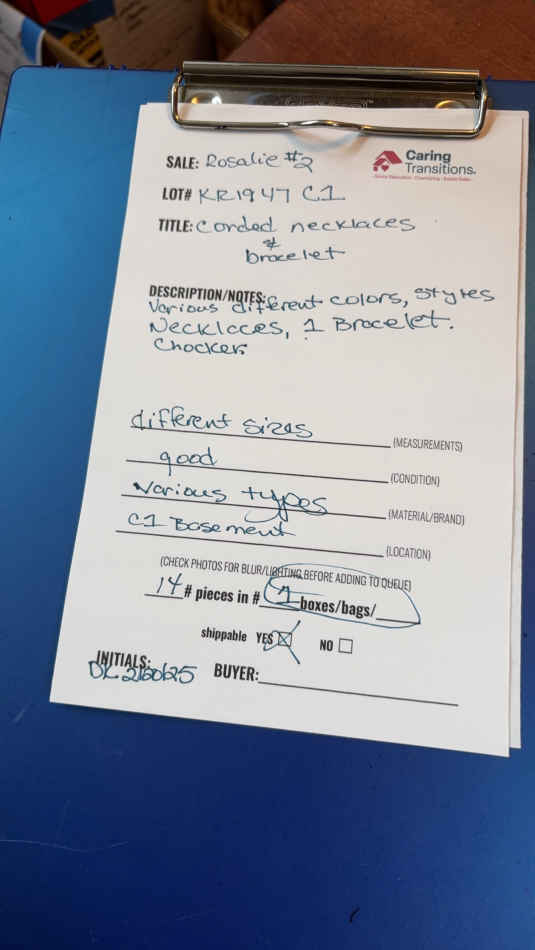 SALE: Rosalie #2
Caring
Transitions®
LOT# KR1947 C1
TITLE: Corded necklaces
&
bracelet
DESCRIPTION/NOTES:
Various different colors, styles
Necklaces, 1 Bracelet.
Chocker
different sizes (MEASUREMENTS)
good (CONDITION)
Various types (MATERIAL/BRAND)
C1 Basement (LOCATION)
(CHECK PHOTOS FOR BLUR/LIGHTING BEFORE ADDING TO QUEUE)
14 # pieces in # 1 boxes/bags/
shippable YES NO
INITIALS:
DK 2/20/25 BUYER: